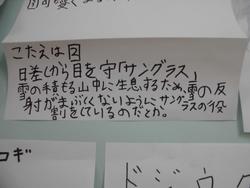 こたえは②
日差しから目を守「サングラス」
雪の積もる山中に生息するため、雪の反
射がまぶしくないようにサングラスの役
割をしているのだとか。
コギ
ドジョウ